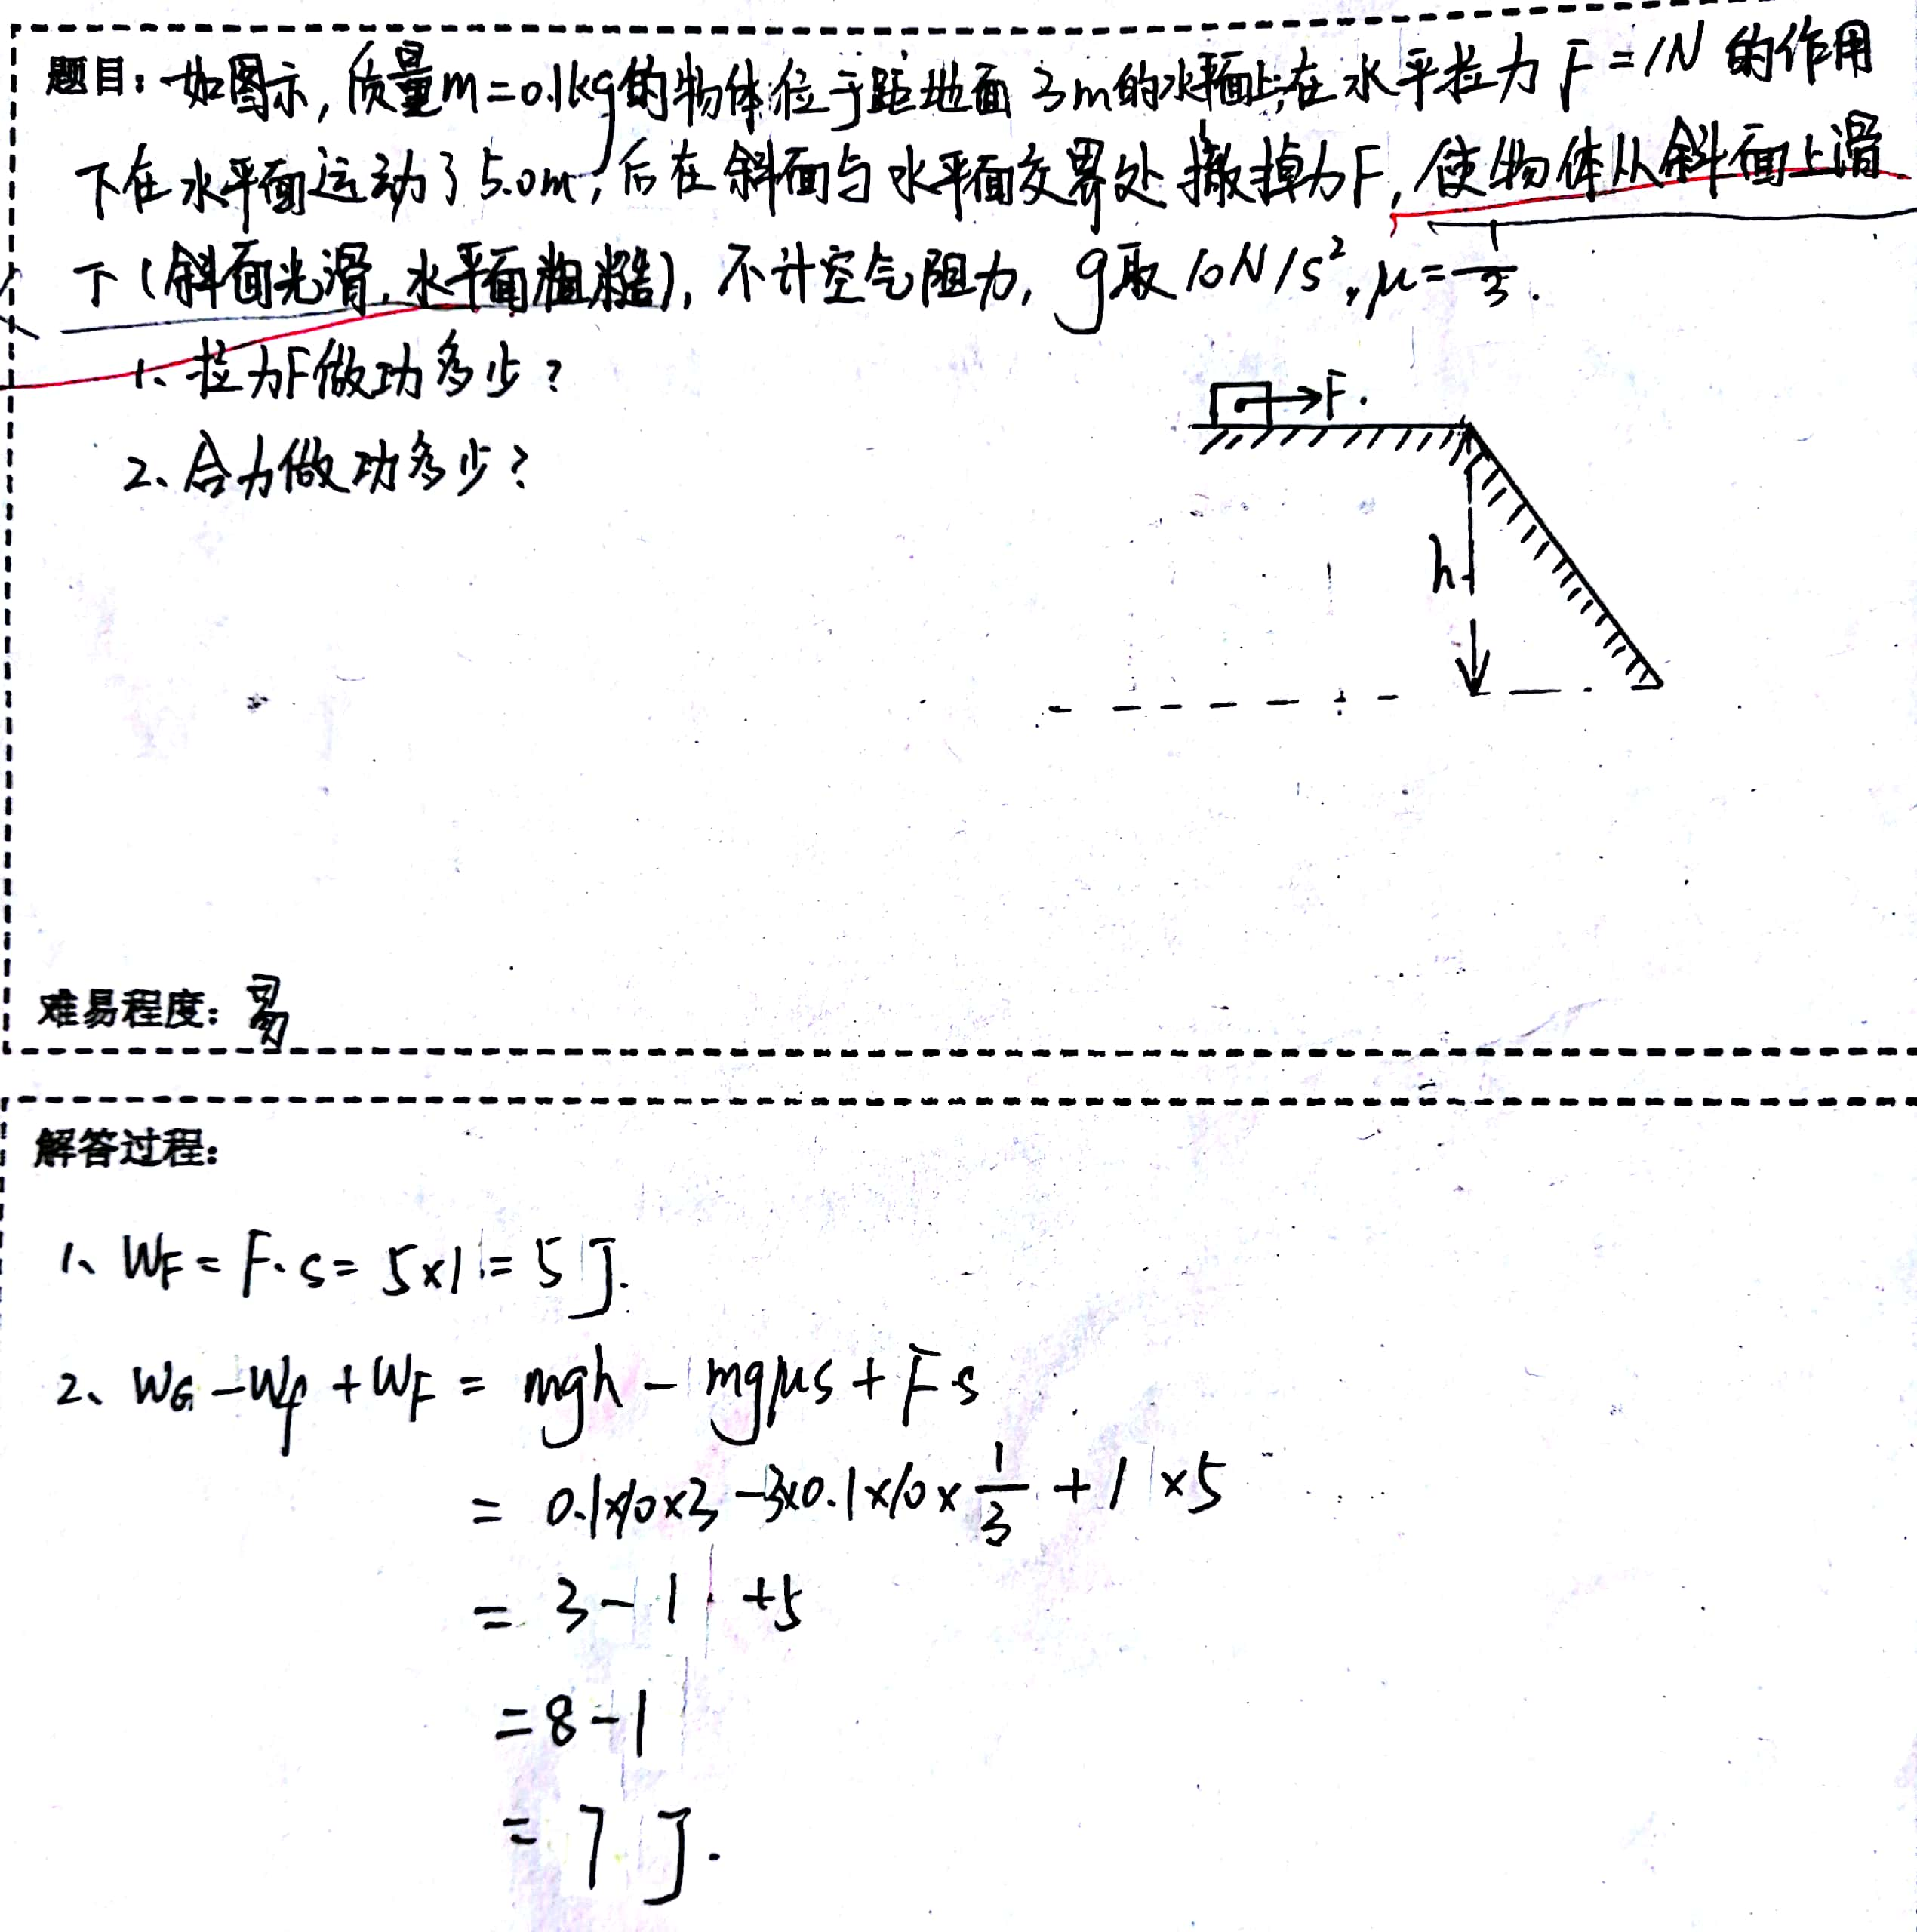 题目：如图示，质量m=0.1kg的物体位于距地面 3m的水平面上，在水平拉力 F=1N 的作用
下在水平面运动了5.0m，后在斜面与水平面交界处撤掉力F，使物体从斜面上滑
下（斜面光滑，水平面粗糙），不计空气阻力，g取 10N/s²，μ=1/3.
1、拉力F做功多少？
2、合力做功多少？
F.
h
难易程度：易
解答过程：
1、W_F = F·s = 5×1 = 5 J.
2、W_G - W_f + W_F = mgh - mgμs + F·s
= 0.1×10×3 - 3×0.1×10×1/3 + 1×5
= 3 - 1 + 5
= 8 - 1
= 7 J.